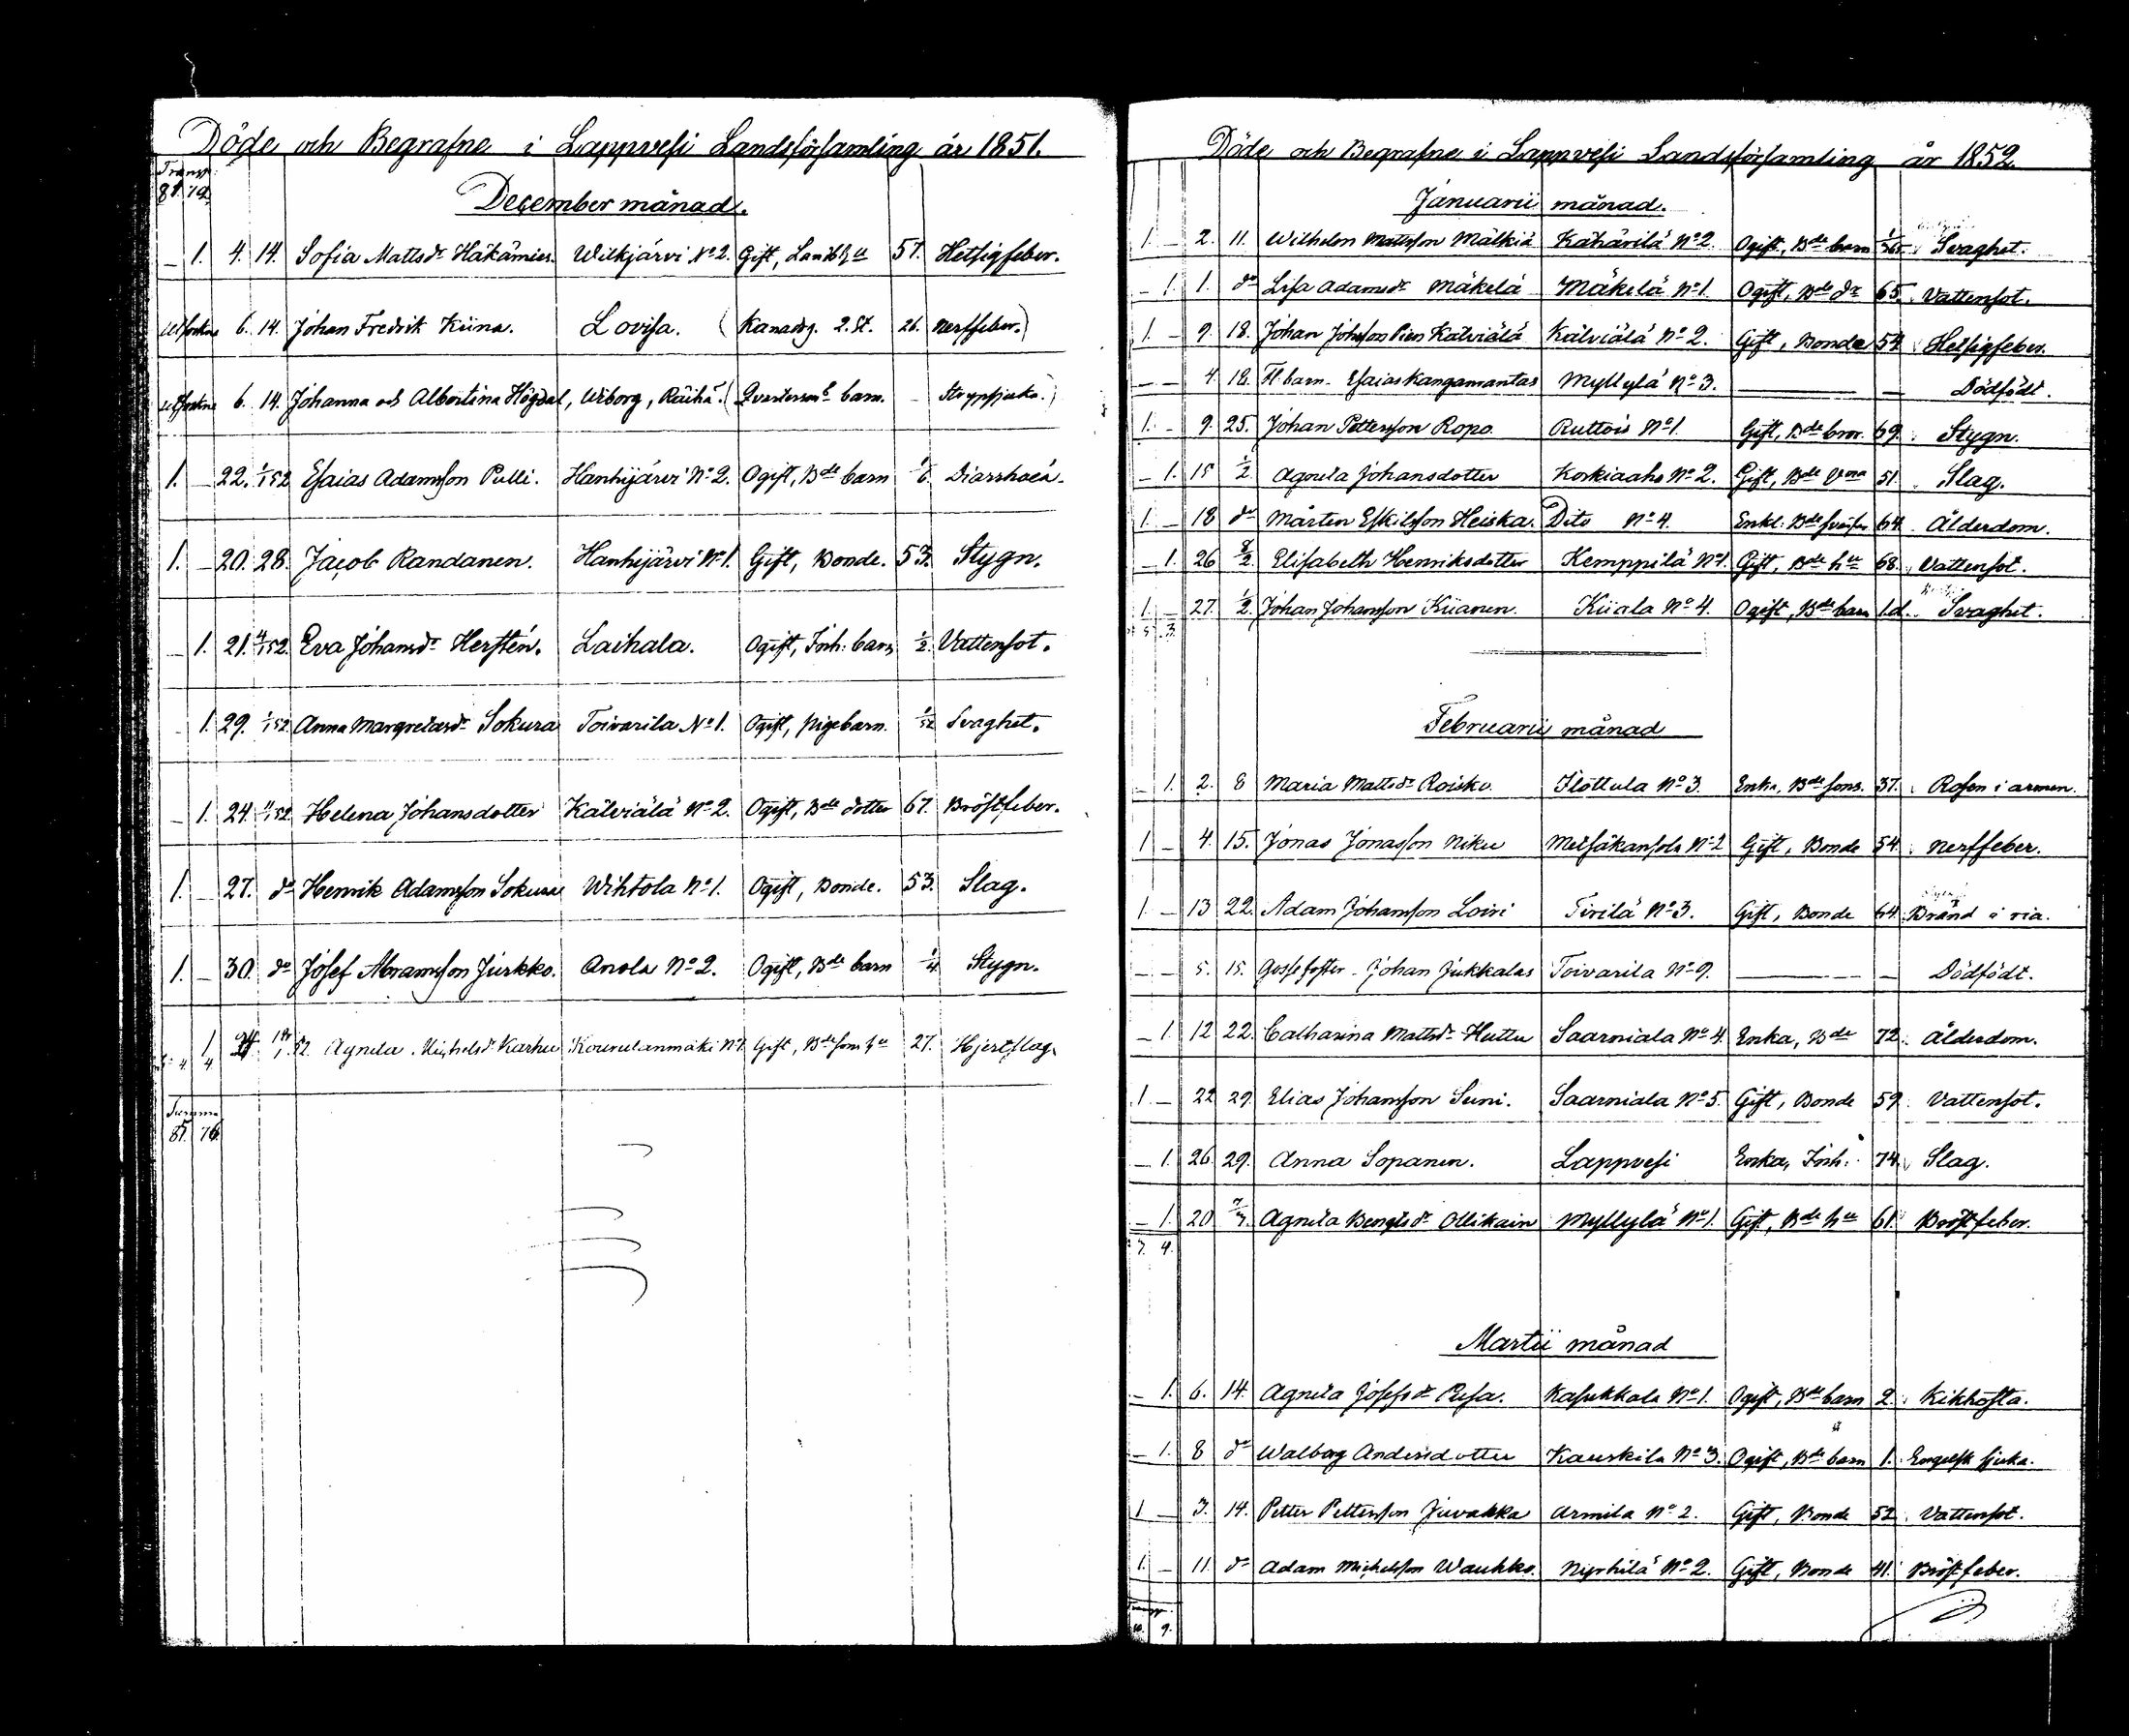 Döde och Begrafne i Lappvesi Landsförsamling år 1851.
Transp.
81. 72.
December månad.
– 1. 4. 14. Sofia Mattsdr Häkämies. Wilkjärvi No 2. Gift, 57. Hetsigfeber.
6. 14. Johan Fredrik Kiina. Lovisa. (Kanadsg. 2. St. 26. Nerffeber.)
6. 14. Johanna och Albertina Högdal, Wiborg, Räihä. barn. –
1. – 22. 1/1 52 Esaias Adamsson Pulli. Hanhijärvi No 2. Ogift, Bde barn 1/6. Diarrhaea.
1. – 20. 28. Jacob Randanen. Hanhijärvi No 1. Gift, Bonde. 53. Stygn.
– 1. 21. 4/1 52. Eva Johansdr Herstén. Laihala. Ogift, Inh: barn 1/2 Vattensot.
– 1. 29. 1/1 52. Anna Margretasdr Sokura Toivarila No 1. Ogift, pigebarn. 1/52 Svaghet.
– 1. 24. 11/1 52. Helena Johansdotter Kälviälä No 2. Ogift, Bde dotter 67. Bröstfeber.
1. – 27. do Henrik Adamsson Sokura Wihtola No 1. Ogift, Bonde. 53. Slag.
1. – 30. do Josef Abramsson Jurkko. Anola No 2. Ogift, Bde barn 1/4. Stygn.
1 52. Agneta Michelsdr Karhu Kourulanmäki No 1. Gift, Bde sons hu 27. Hjertslag.
4. 4
Summa
85. 76.
Döde och Begrafne i Lappvesi Landsförsamling år 1852.
Januarii månad.
1. – 2. 11. Wilhelm Mattsson Mälkiä Kähärilä No 2. Ogift, Bde barn 1/365. Svaghet.
– 1. 1. do Lisa Adamsdr Mäkelä Mäkelä No 1. Ogift, Bde dr 65. Vattensot.
1. – 9. 18. Johan Johsson Pien Kälviälä Kälviälä No 2. Gift, Bonde 54. Hetsigfeber.
– – 4. 18. Fl barn – Esaias Kangasmantas Myllylä No 3. — — Dödfödt.
1. – 9. 25. Johan Pettersson Ropo. Ruttois No 1. Gift, Bde bror. 69. Stygn.
– 1. 15 1/2. Agneta Johansdotter Koskiaaho No 2. Gift, Bde 51. Slag.
1. – 18 do Mårten Eskilsson Heiska. Dito No 4. Enkl. Bde 64. Ålderdom.
– 1. 26 8/2. Elisabeth Henriksdotter Kemppilä No 1. Gift, Bde hu 68. Vattensot.
1. – 27. 1/2. Johan Johansson Kiianen. Kiiala No 4. Ogift, Bde barn 1.d. Svaghet.
5. 3.
Februarii månad
– 1. 2. 8 Maria Mattsdr Roisko. Ilottula No 3. Enka, Bde sons. 37. Rosen i armen.
1 – 4. 15. Jonas Jonasson Niku Metsäkansola No 2 Gift, Bonde 54. Nerffeber.
1 – 13 22. Adam Johansson Loiri Tirilä No 3. Gift, Bonde 64. Bränd i ria.
– – 5. 15. Gossefoster – Johan Jukkalas Toivarila No 9. — — Dödfödt.
– 1. 12 22. Catharina Mattsdr Huttu Saarniala No 4. Enka, Bde 72. Ålderdom.
1. – 22 29. Elias Johansson Suni. Saarniala No 5. Gift, Bonde 59. Vattensot.
– 1. 26. 29. Anna Sopanen. Lappvesi Enka, Inh: 74. Slag.
– 1. 20 7/3. Agneta Bengtsdr Ollikain Myllylä No 1. Gift, Bde hu 61. Bröstfeber.
3. 4.
Martii månad
– 1. 6. 14. Agneta Josefsdr Pesa. Kasukkala No 1. Ogift, Bde barn 2. Kikhosta.
– 1. 8 do Walborg Andersdotter Kauskila No 3. Ogift, Bde barn 1. Engelsk sjuka.
1 – 3. 14. Petter Pettersson Juvakka Armila No 2. Gift, Bonde 52. Vattensot.
1. – 11. do Adam Michelsson Waukko. Nyrhilä No 2. Gift, Bonde 41. Bröstfeber.
Transp.
10. 9.